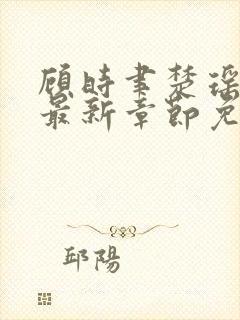 顾时聿楚瑶
最新章节免
邱陽